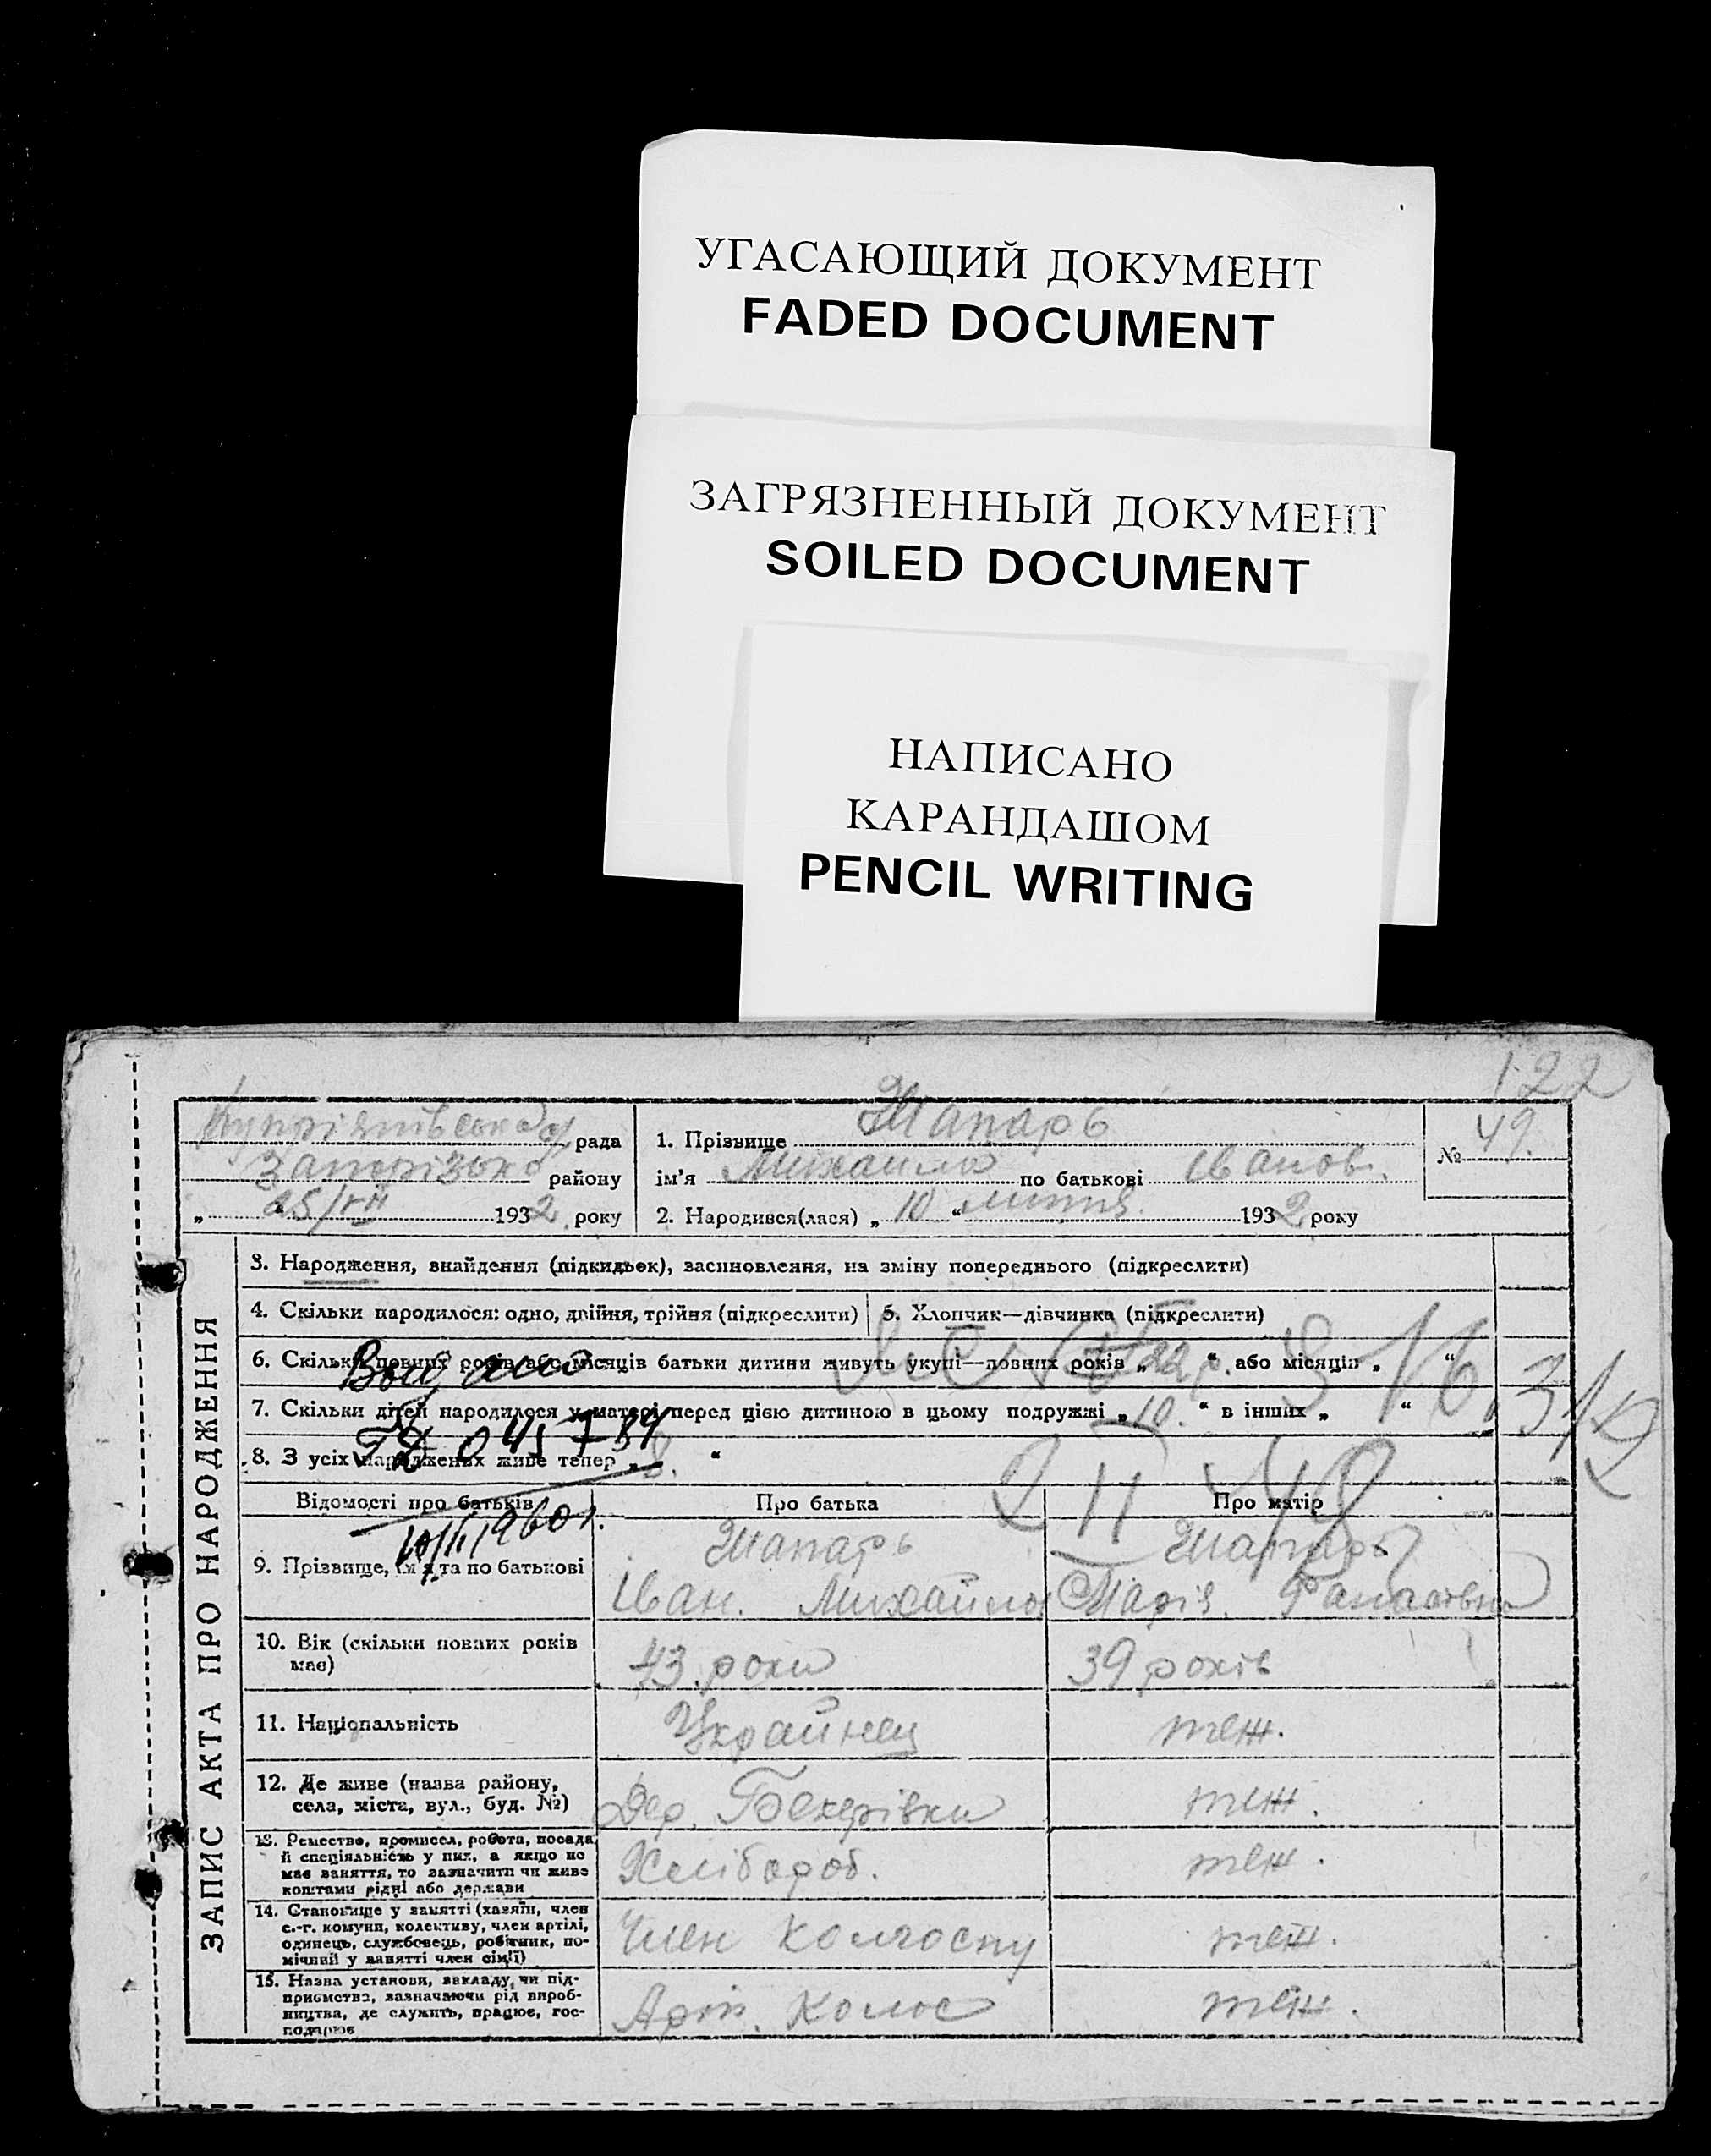 УГАСАЮЩИЙ ДОКУМЕНТ
FADED DOCUMENT
ЗАГРЯЗНЕННЫЙ ДОКУМЕНТ
SOILED DOCUMENT
НАПИСАНО
КАРАНДАШОМ
PENCIL WRITING
122
рада
1. Прізвище Шапарь
№ 49.
Запорізько району
ім'я Михаило по батькові Іванов.
„ 25/VII 1932 року
2. Народився(лася) „ 10 “ липня 1932 року
ЗАПИС АКТА ПРО НАРОДЖЕННЯ
3. Народження, знайдення (підкидьок), засиновлення, на зміну попереднього (підкреслити)
4. Скільки народилося: одно, двійня, трійня (підкреслити)
5. Хлопчик—дівчинка (підкреслити)
6. Скільки повних років або місяців батьки дитини живуть укупі—повних років „ 22 “ або місяців „ “
7. Скільки дітей народилося у матері перед цією дитиною в цьому подружжі „ 10. “ в інших „ “
8. З усіх народжених живе тепер „ 8. “
10/II 1960 г.
Відомості про батьків
Про батька
Про матір
9. Прізвище, ім'я та по батькові
Шапарь
Іван. Михайлов
Шапарь
Марія.
10. Вік (скільки повних років
має)
43 роки
39 років
11. Національність
Украйнец
теж.
12. Де живе (назва району,
села, міста, вул., буд. №)
Дер.
теж.
13. Ремество, промисел, робота, посада
й спеціяльність у них, а якщо не
має заняття, то зазначити чи живе
коштами рідні або держави
Хлібороб.
теж.
14. Становище у занятті (хазяїн, член
с.-г. комуни, колективу, член артілі,
одинець, службовець, робітник, по-
мічний у занятті член сім'ї)
Член колгоспу
теж.
15. Назва установи, закладу, чи під-
приємства, зазначаючи рід вироб-
ництва, де служить, працює, гос-
подарює
Арт. Колос
теж.